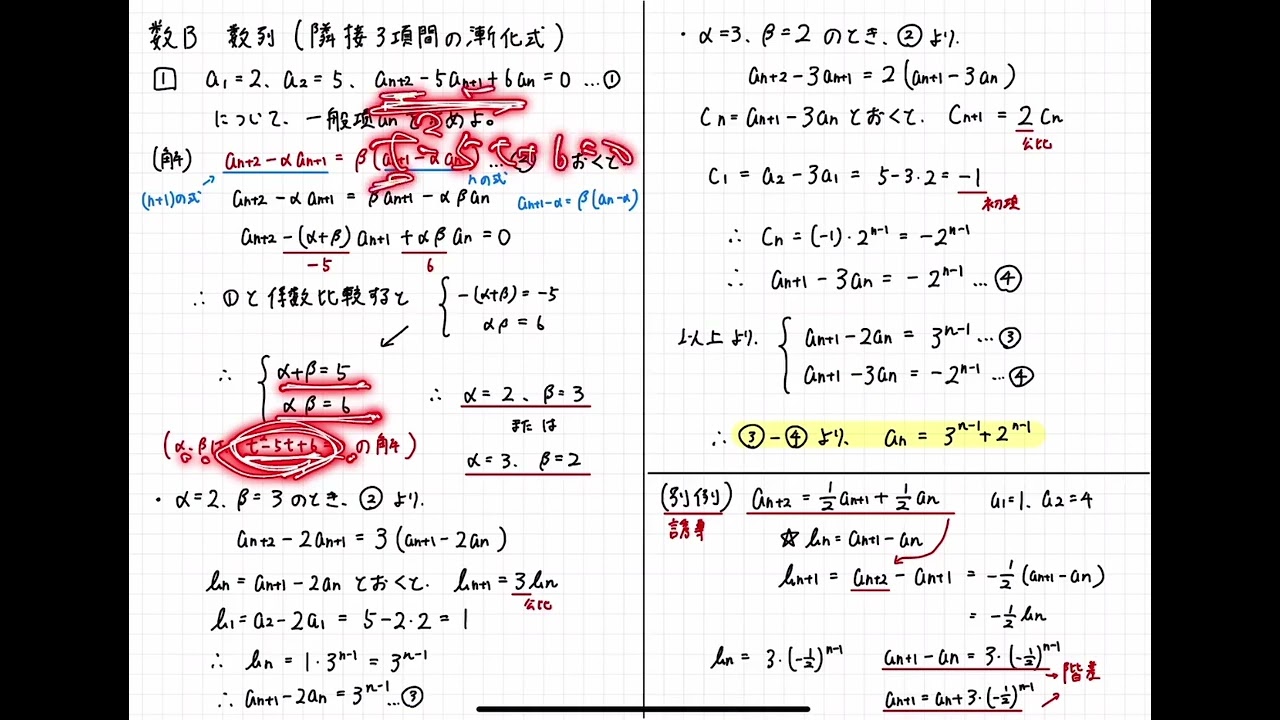 数B 数列 (隣接3項間の漸化式)
1 a₁=2、a₂=5、aₙ₊₂-5aₙ₊₁+6aₙ=0 …①
について、一般項aₙを めよ。
t²-5t+6=0
(解) aₙ₊₂-αaₙ₊₁=β(aₙ₊₁-αaₙ …② おくと
(n+1)の式
nの式
aₙ₊₂-αaₙ₊₁=βaₙ₊₁-αβaₙ
aₙ₊₁-α=β(aₙ-α)
aₙ₊₂-(α+β)aₙ₊₁+αβaₙ=0
-5 6
∴ ①と係数比較すると { -(α+β)=-5
αβ=6
∴ { α+β=5
αβ=6
(α、βは t²-5t+6= の解)
∴ α=2、β=3
または
α=3、β=2
・α=2、β=3のとき、②より、
aₙ₊₂-2aₙ₊₁=3(aₙ₊₁-2aₙ)
bₙ=aₙ₊₁-2aₙとおくと、bₙ₊₁=3bₙ
公比
b₁=a₂-2a₁=5-2・2=1
∴ bₙ=1・3ⁿ⁻¹=3ⁿ⁻¹
∴ aₙ₊₁-2aₙ=3ⁿ⁻¹…③
・α=3、β=2のとき、②より、
aₙ₊₂-3aₙ₊₁=2(aₙ₊₁-3aₙ)
Cₙ=aₙ₊₁-3aₙとおくと、Cₙ₊₁=2Cₙ
公比
C₁=a₂-3a₁=5-3・2=-1
初項
∴ Cₙ=(-1)・2ⁿ⁻¹=-2ⁿ⁻¹
∴ aₙ₊₁-3aₙ=-2ⁿ⁻¹…④
以上より、{ aₙ₊₁-2aₙ=3ⁿ⁻¹…③
aₙ₊₁-3aₙ=-2ⁿ⁻¹…④
∴ ③-④より、aₙ=3ⁿ⁻¹+2ⁿ⁻¹
(別例) aₙ₊₂=½aₙ₊₁+½aₙ a₁=1、a₂=4
誘導
☆ bₙ=aₙ₊₁-aₙ
bₙ₊₁=aₙ₊₂-aₙ₊₁=-½(aₙ₊₁-aₙ)
=-½bₙ
bₙ=3・(-½)ⁿ⁻¹ aₙ₊₁-aₙ=3・(-½)ⁿ⁻¹
→階差
aₙ₊₁=aₙ+3・(-½)ⁿ⁻¹